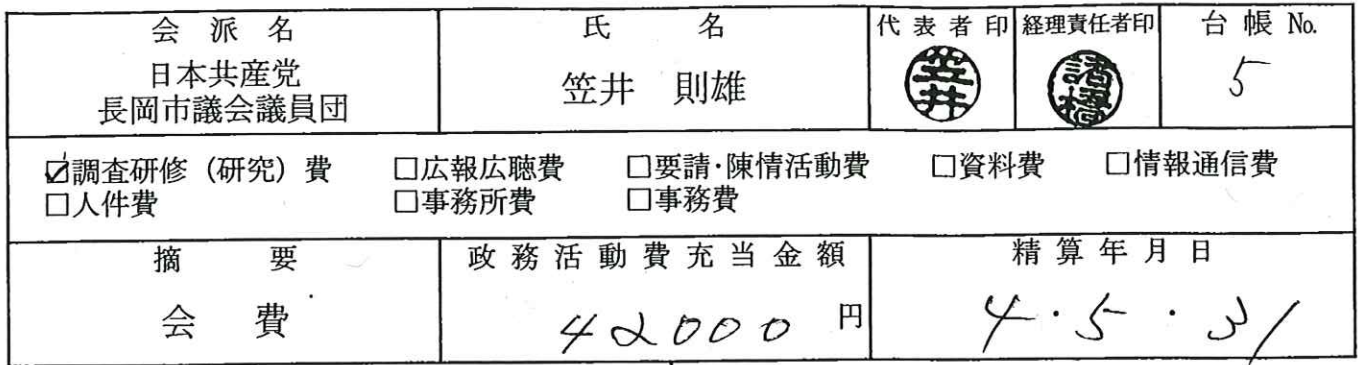 会派名 氏名 代表者印 経理責任者印 台帳No.
日本共産党
長岡市議会議員団
笠井 則雄 笠井 諸橋 5
☑調査研修（研究）費 □広報広聴費 □要請・陳情活動費 □資料費 □情報通信費
□人件費 □事務所費 □事務費
摘要 政務活動費充当金額 精算年月日
会費 42000 円 4・5・31